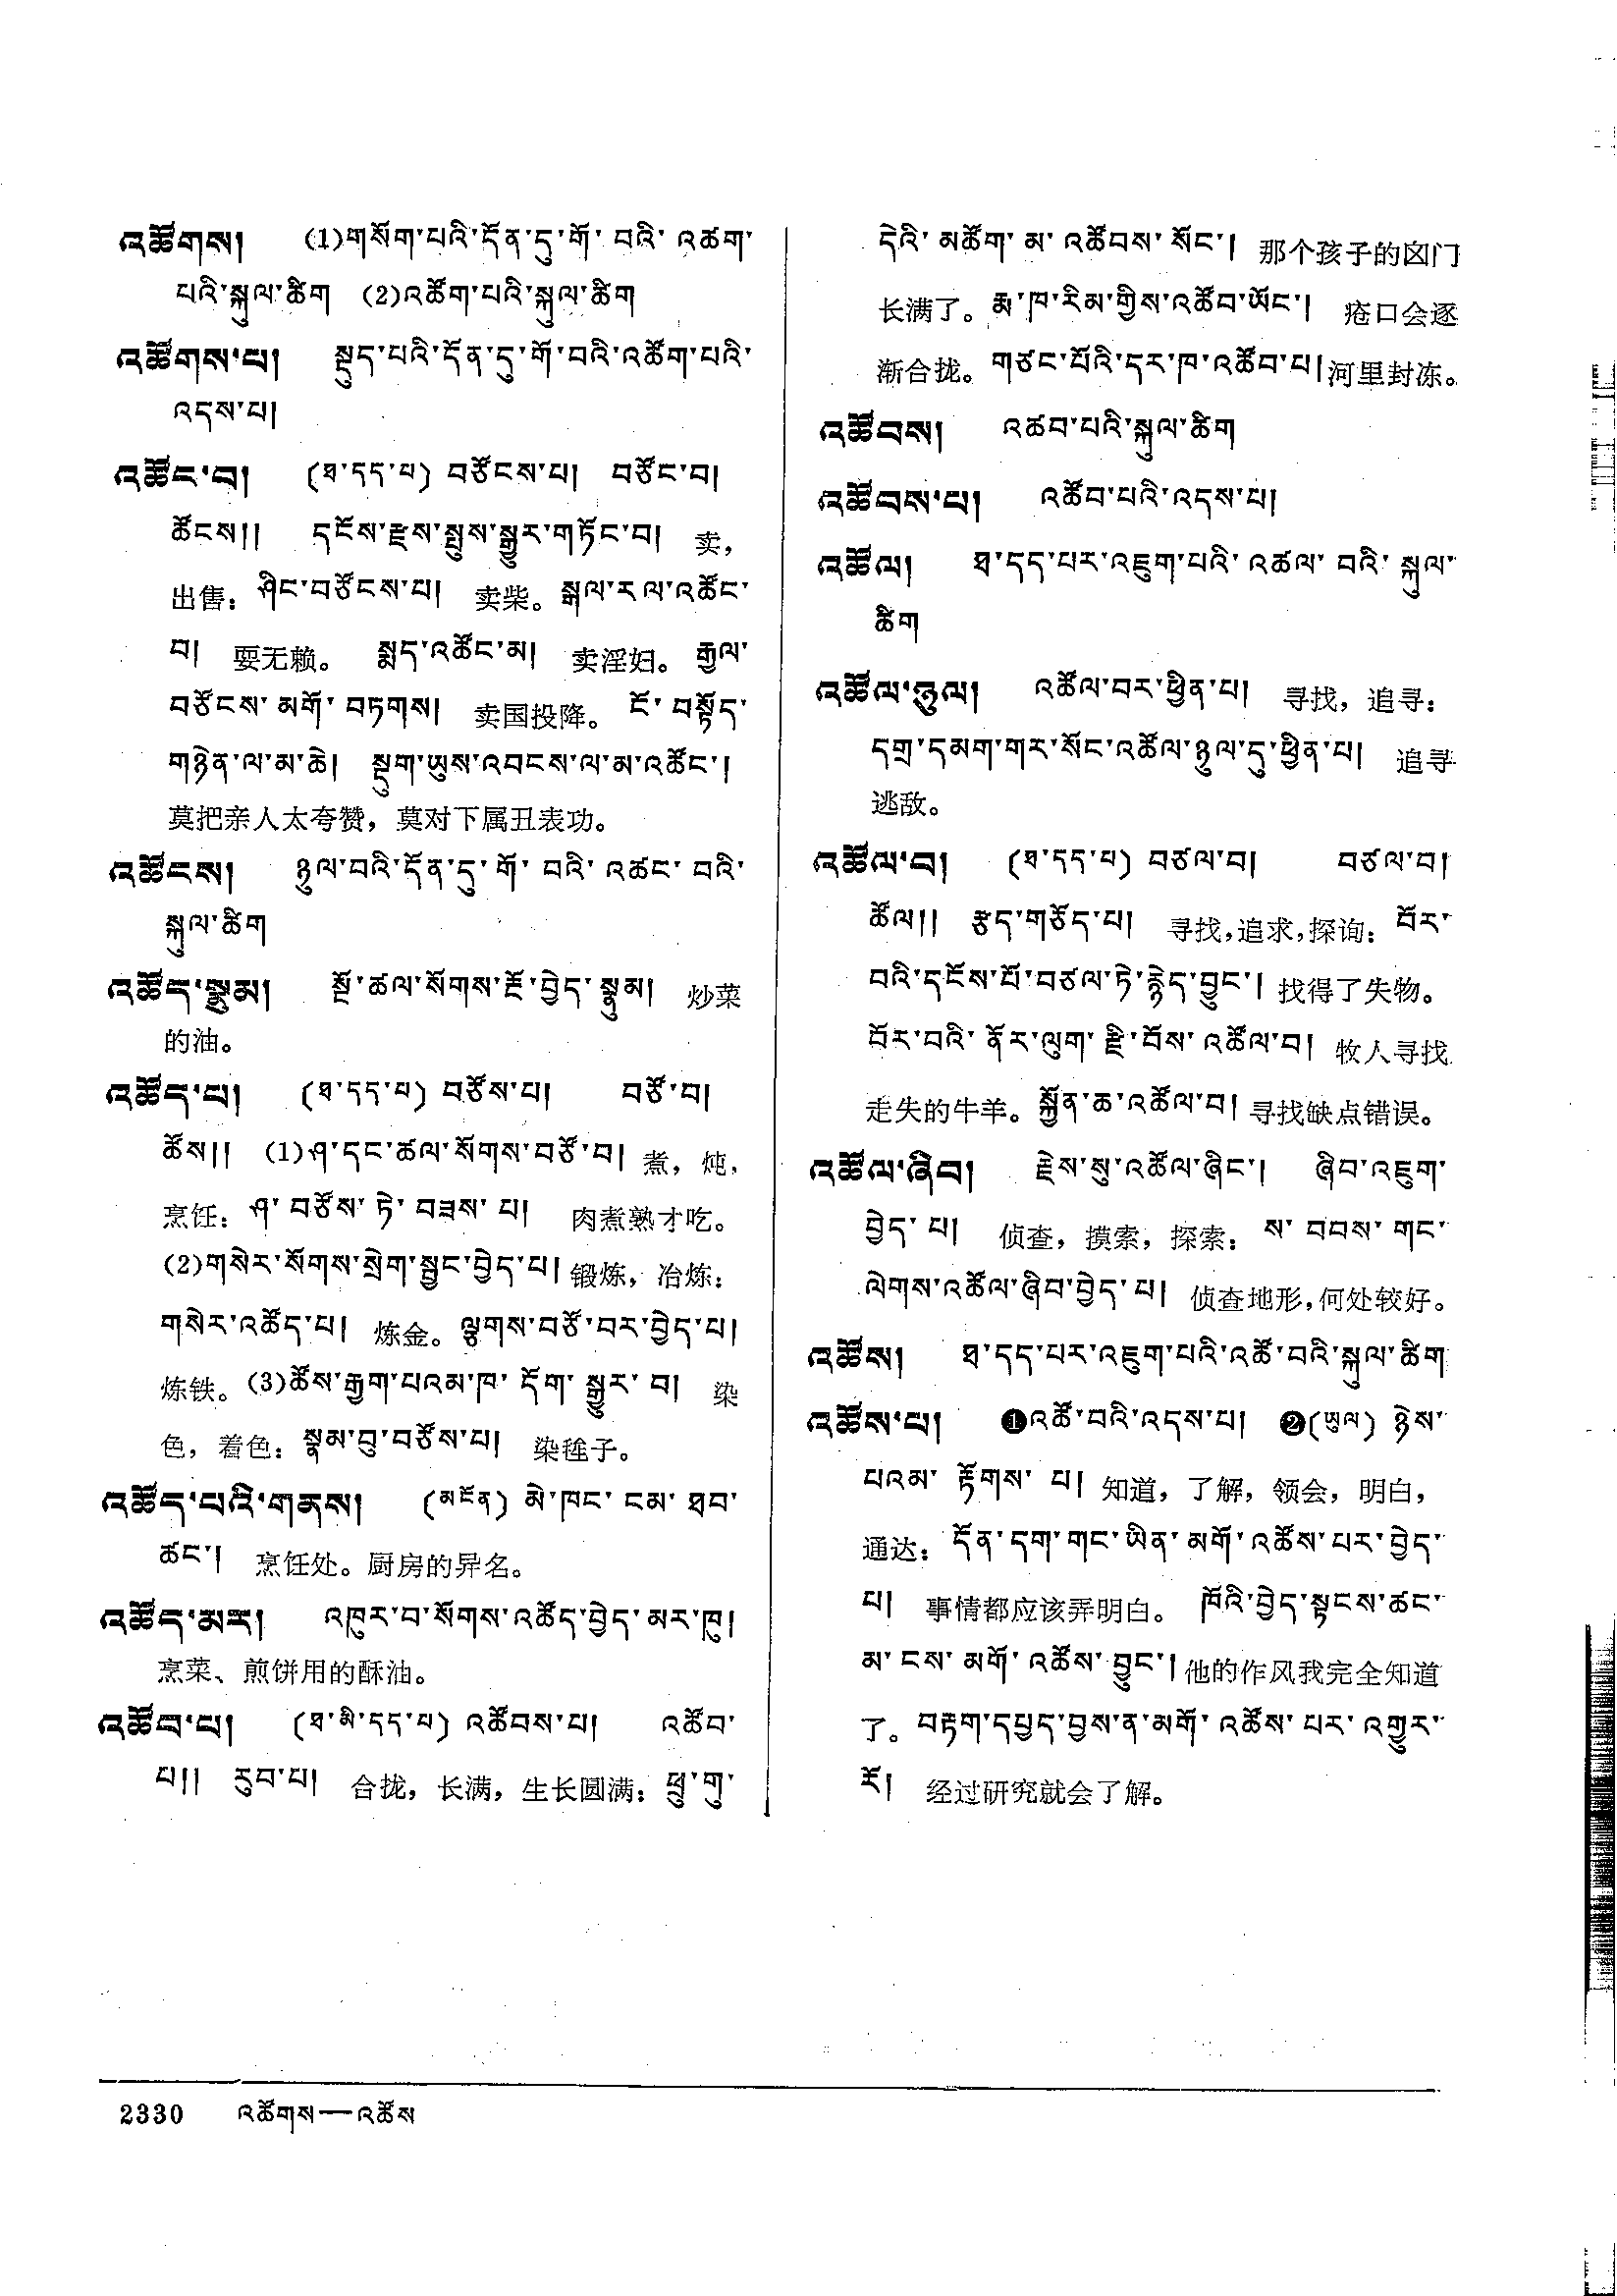 འཚོགས། (1)གསོག་པའི་དོན་དུ་གོ་བའི་འཚག་
པའི་སྐུལ་ཚིག (2)འཚོག་པའི་སྐུལ་ཚིག
འཚོགས་པ། སྡུད་པའི་དོན་དུ་གོ་བའི་འཚོག་པའི་
འདས་པ།
འཚོང་བ། (ཐ་དད་པ) བཙོངས་པ། བཙོང་བ།
ཚོངས།། དངོས་རྫས་སྤུས་སྒྱུར་གཏོང་བ། 卖，
出售：ཤིང་བཙོངས་པ། 卖柴。སྒལ་རལ་འཚོང་
བ། 耍无赖。 སྨད་འཚོང་མ། 卖淫妇。རྒྱལ་
བཙོངས་མགོ་བཏགས། 卖国投降。ངོ་བསྟོད་
གཉེན་ལ་མ་ཆེ། སྡུག་ཡུས་འབངས་ལ་མ་འཚོང་།
莫把亲人太夸赞，莫对下属丑表功。
འཚོངས། ཉུལ་བའི་དོན་དུ་གོ་བའི་འཚང་བའི་
སྐུལ་ཚིག
འཚོད་སྣུམ། སྔོ་ཚལ་སོགས་རྔོ་བྱེད་སྣུམ། 炒菜
的油。
འཚོད་པ། (ཐ་དད་པ) བཙོས་པ། བཙོ་བ།
ཚོས།། (1)ཤ་དང་ཚལ་སོགས་བཙོ་བ། 煮，炖，
烹饪：ཤ་བཙོས་ཏེ་བཟས་པ། 肉煮熟才吃。
(2)གསེར་སོགས་སྲེག་སྦྱང་བྱེད་པ། 锻炼，冶炼：
གསེར་འཚོད་པ། 炼金。ལྕགས་བཙོ་བར་བྱེད་པ།
炼铁。(3)ཚོས་རྒྱག་པའམ་ཁ་དོག་སྒྱུར་བ། 染
色，着色：སྣམ་བུ་བཙོས་པ། 染氆子。
འཚོད་པའི་གནས། (མངོན) མེ་ཁང་ངམ་ཐབ་
ཚང་། 烹饪处。厨房的异名。
འཚོད་མར། འཁུར་བ་སོགས་འཚོད་བྱེད་མར་ཁུ།
烹菜、煎饼用的酥油。
འཚོབ་པ། (ཐ་མི་དད་པ) འཚོབས་པ། འཚོབ་
པ།། རུབ་པ། 合拢，长满，生长圆满：ཕྲུ་གུ་
དེའི་མཚོག་མ་འཚོབས་སོང་། 那个孩子的囟门
长满了。རྨ་ཁ་རིམ་གྱིས་འཚོབ་ཡོང་། 疮口会逐
渐合拢。གཙང་པོའི་དར་ཁ་འཚོབ་པ། 河里封冻。
འཚོབས། འཚབ་པའི་སྐུལ་ཚིག
འཚོབས་པ། འཚོབ་པའི་འདས་པ།
འཚོལ། ཐ་དད་པར་འཇུག་པའི་འཚལ་བའི་སྐུལ་
ཚིག
འཚོལ་ཉུལ། འཚོལ་བར་ཕྱིན་པ། 寻找，追寻：
དགྲ་དམག་གར་སོང་འཚོལ་ཉུལ་དུ་ཕྱིན་པ། 追寻
逃敌。
འཚོལ་བ། (ཐ་དད་པ) བཙལ་བ། བཙལ་བ།
ཚོལ།། རྩད་གཅོད་པ། 寻找，追求，探询：བོར་
བའི་དངོས་པོ་བཙལ་ཏེ་རྙེད་བྱུང་། 找得了失物。
བོར་བའི་ནོར་ལུག་རྫི་བོས་འཚོལ་བ། 牧人寻找
走失的牛羊。སྐྱོན་ཆ་འཚོལ་བ། 寻找缺点错误。
འཚོལ་ཞིབ། རྗེས་སུ་འཚོལ་ཞིང་། ཞིབ་འཇུག་
བྱེད་པ། 侦查，摸索，探索：ས་བབས་གང་
ལེགས་འཚོལ་ཞིབ་བྱེད་པ། 侦查地形，何处较好。
འཚོས། ཐ་དད་པར་འཇུག་པའི་འཚོ་བའི་སྐུལ་ཚིག
འཚོས་པ། ❶འཚོ་བའི་འདས་པ། ❷(ཡུལ) ཉེས་
པའམ་རྟོགས་པ། 知道，了解，领会，明白，
通达：དོན་དག་གང་ཡིན་མགོ་འཚོས་པར་བྱེད་
པ། 事情都应该弄明白。 ཁོའི་བྱེད་སྟངས་ཚང་
མ་ངས་མགོ་འཚོས་བྱུང་། 他的作风我完全知道
了。བརྟག་དཔྱད་བྱས་ན་མགོ་འཚོས་པར་འགྱུར་
རོ། 经过研究就会了解。
2330 འཚོགས—འཚོས